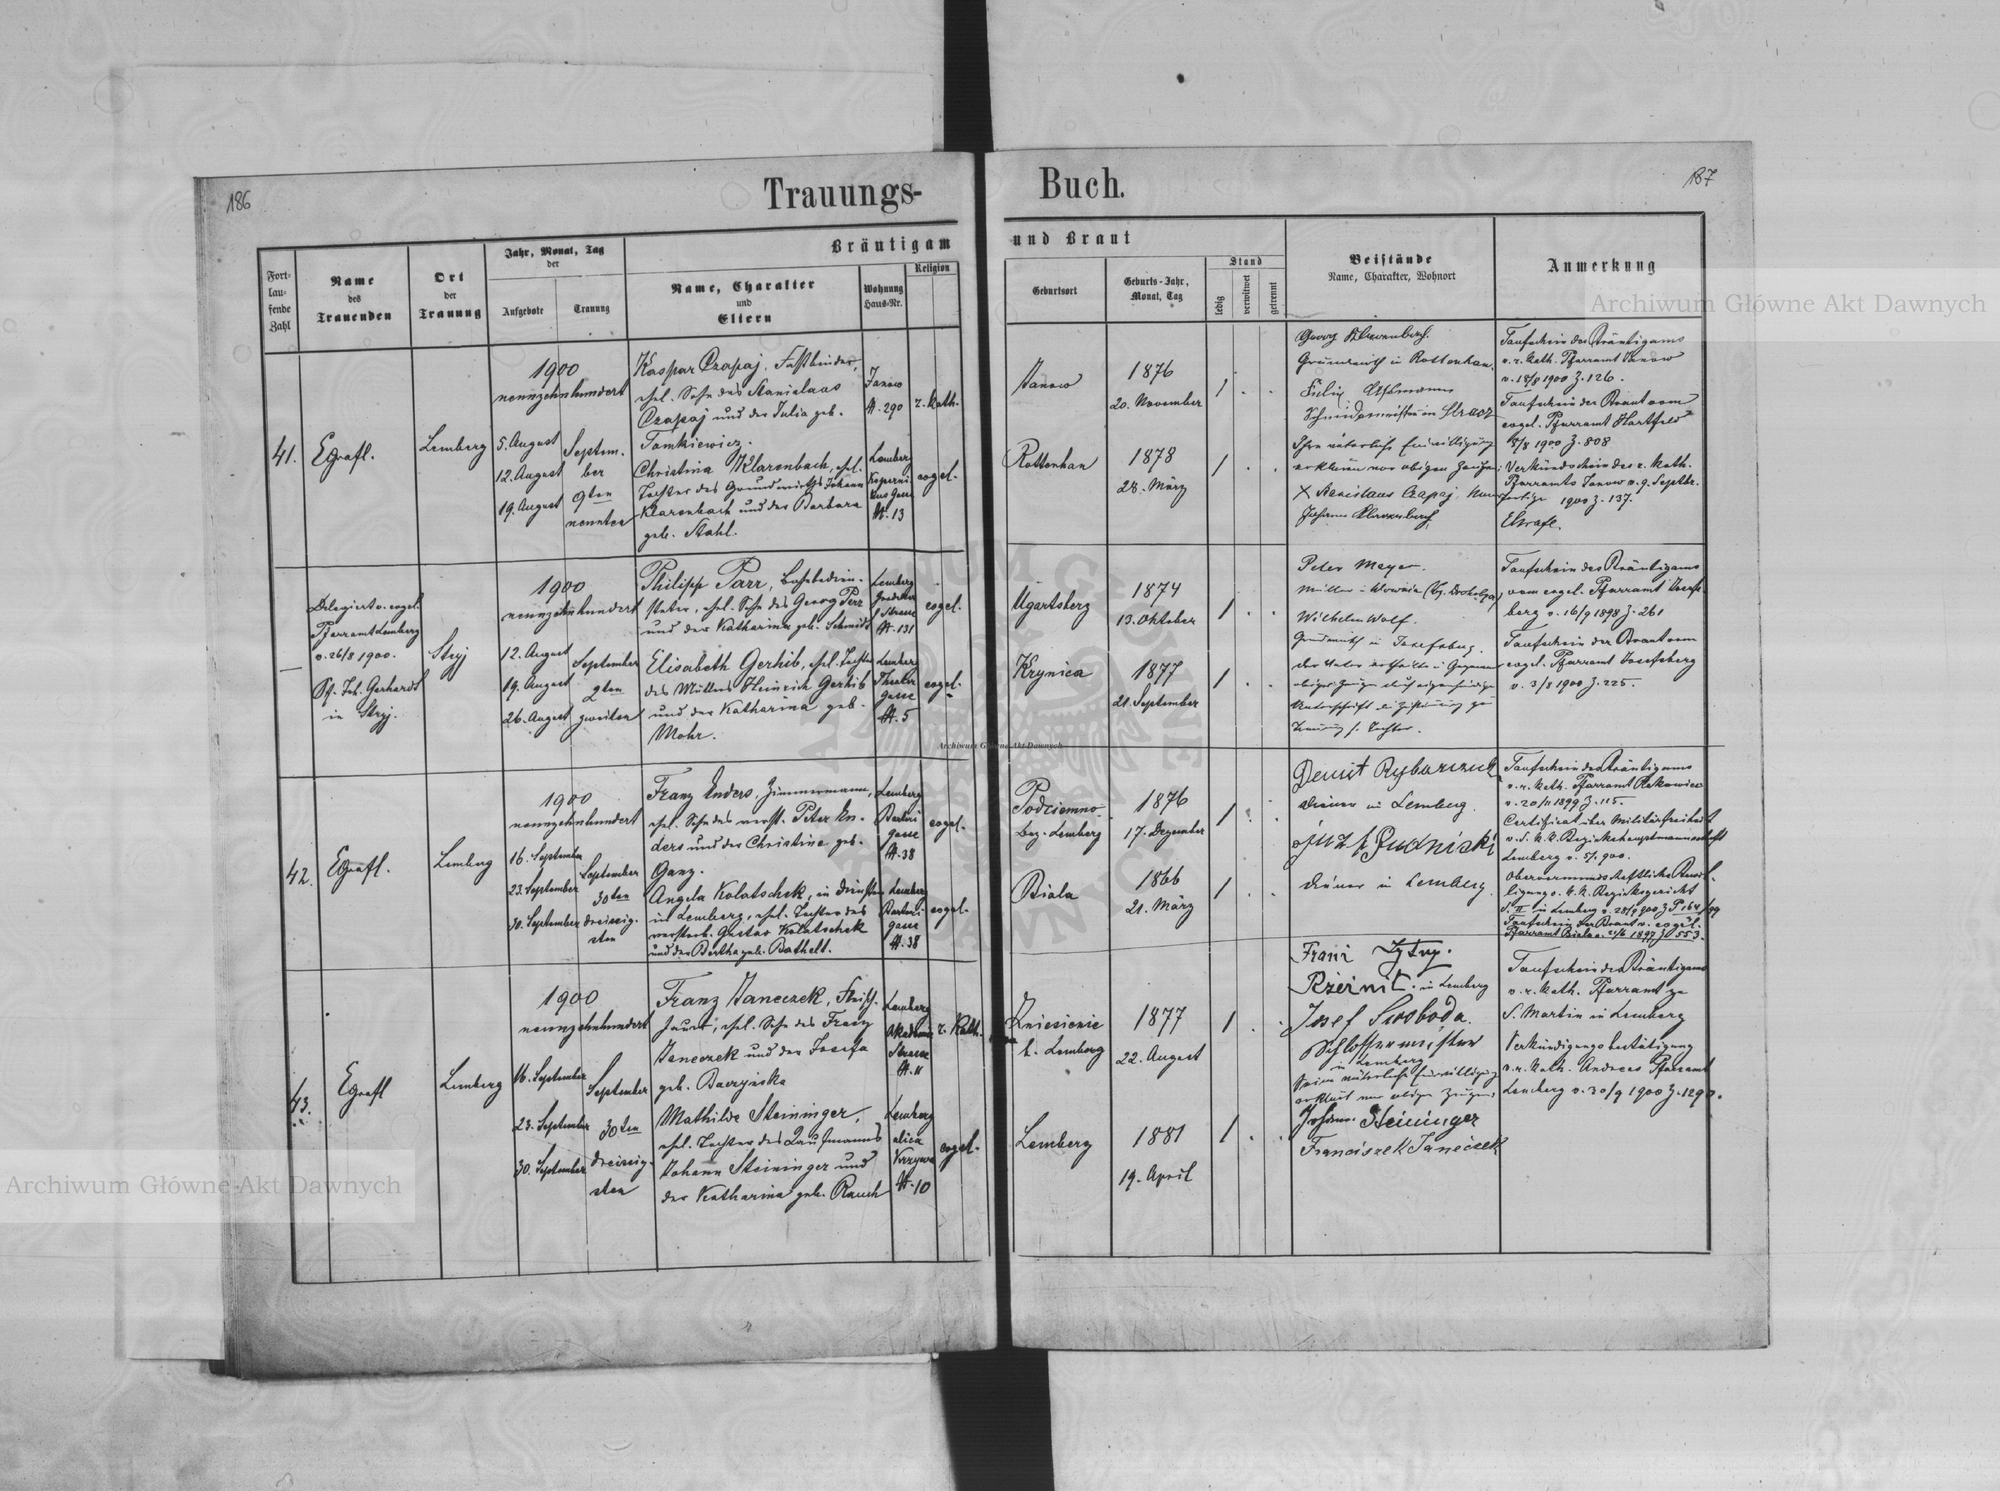 186
Trauungs-
Buch.
187
Fort-
lau-
fende
Zahl
Name
des
Trauenden
Ort
der
Trauung
Jahr, Monat, Tag
der
Aufgebote
Trauung
Bräutigam
Name, Charakter
und
Eltern
Wohnung
Haus-Nr.
Religion
und Braut
Geburtsort
Geburts-Jahr,
Monat, Tag
Stand
ledig
verwitwet
getrennt
Beistände
Name, Charakter, Wohnort
Anmerkung
41.
Lemberg
1900
neunzehnhundert
5. August
12. August
19. August
Septem-
ber
9ten
neunten
Kaspar Czapaj, Fassbinder,
ehel. Sohn des Stanislaus
Czapaj und der Julia geb.
Tomkiewicz.
Christina Klarenbach, ehel.
Tochter des Grundwirths Johann
Klarenbach und der Barbara
geb. Stahl.
Janow
N. 290
Lemberg
Koperni
kus Gasse
N. 13
r. kath.
evgel.
Janow
1876
20. November
Rottenhan
1878
28. März
Georg Klarenbach
Grundwirth in Rottenhan.
Schmiedemeister in
Ihre väterliche Einwilligung
erklären vor obigen Zeugen:
X Stanislaus Czapaj,
Johann Klarenbach
Taufschein des Bräutigams
v. r. kath. Pfarramt Janow
v. 18/8 1900 Z. 126.
Taufschein der Braut vom
evgel. Pfarramt Hartfeld
8/8 1900 Z. 808
Verkündschein des r. kath.
Pfarramts Janow v. 9. Septbr.
1900 Z. 137.
Delegiert v. evgel.
Pfarramt Lemberg
v. 26/8 1900.
Pf. Joh. Gerhardt
in Stryj.
Stryj
1900
neunzehnhundert
12. August
19. August
26. August
September
2ten
zweiten
Philipp Parr, Bahnbedien-
steter, ehel. Sohn des Georg Parr
und der Katharina geb. Schmidt
Elisabeth Gerhib, ehel. Tochter
des Müllers Heinrich Gerhib
und der Katharina geb.
Mohr.
Lemberg
Grodeker
Strasse
N. 131
Lemberg
Theater
gasse
N. 5
evgel.
evgel.
Ugartsberg
1874
13. Oktober
Krynica
1877
21. September
Peter Meyer
Wilhelm Wolf.
Grundwirth in Josefsberg.
Taufschein des Bräutigams
vom evgel. Pfarramt
berg v. 16/9 1898 Z. 261
Taufschein der Braut vom
evgel. Pfarramt Josefsberg
v. 3/8 1900 Z. 225.
42.
Lemberg
1900
neunzehnhundert
16. September
23. September
30. September
September
30ten
dreissig-
sten
Franz Enders, Zimmermann,
ehel. Sohn des verst. Peter En-
ders und der Christine geb.
Ganz.
Angela Kolatschek, in Diensten
in Lemberg, ehel. Tochter des
verstorb. Gustav Kolatschek
und der Bertha geb. Bathelt.
Lemberg
Batori
gasse
N. 38
Lemberg
Batori
gasse
N. 38
evgel.
evgel.
Podciemno
Bez. Lemberg
1876
17. Dezember
Biala
1866
21. März
Rybarczuk
Diener in Lemberg.
Rudniski
Diener in Lemberg.
Taufschein des Bräutigams
v. r. kath. Pfarramt Rakowiec
v. 20/11 1899 Z. 115.
Certificat über Militärfreiheit
v. d. k. k. Bezirkshauptmannschaft
Lemberg v. 5/ 900.
Obervormundschaftliche Bewil-
ligung v. k. k. Bezirksgericht
S. II in Lemberg v. 28/9 900 Z P 164/99
Taufschein der Braut v. evgel.
Pfarramt Biala v. 21/6 1897 Z. 553.
43.
Lemberg
1900
neunzehnhundert
16. September
23. September
30. September
September
30ten
dreissig-
sten
Franz Janeczek, Fleisch-
hauer, ehel. Sohn des Franz
Janeczek und der Josefa
geb. Baczyńska
Mathilde Steininger,
ehel. Tochter des Kaufmanns
Johann Steininger und
der Katharina geb. Rauch
Lemberg
Akademie
Strasse
N. 11
Lemberg
ulica
Krzywa
N. 10
r. kath.
evgel.
Zniesienie
b. Lemberg
1877
22. August
Lemberg
1881
19. April
Franz
Rzeźnik in Lemberg
Josef Swoboda.
Schlossermeister
in Lemberg
Seine väterliche Einwilligung
erklärt vor obigen Zeugen:
Johann Steininger
Franciszek Janeczek
Taufschein des Bräutigams
v. r. kath. Pfarramt zu
S. Martin in Lemberg
Verkündigungsbestätigung
v. r. kath. Andreas Pfarramt
Lemberg v. 30/9 1900 Z. 1290.
Archiwum Główne Akt Dawnych
Archiwum Główne Akt Dawnych
Archiwum Główne Akt Dawnych